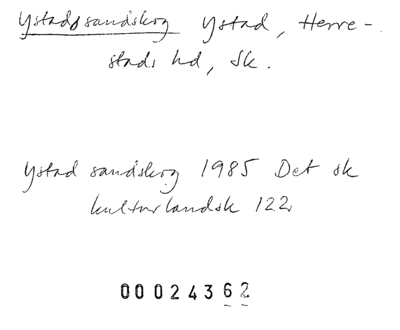 Ystadssandskog Ystad, Herre-
stads hd, Sk.
Ystad sandskog 1985 Det sk
kulturlandsk 122
00024362